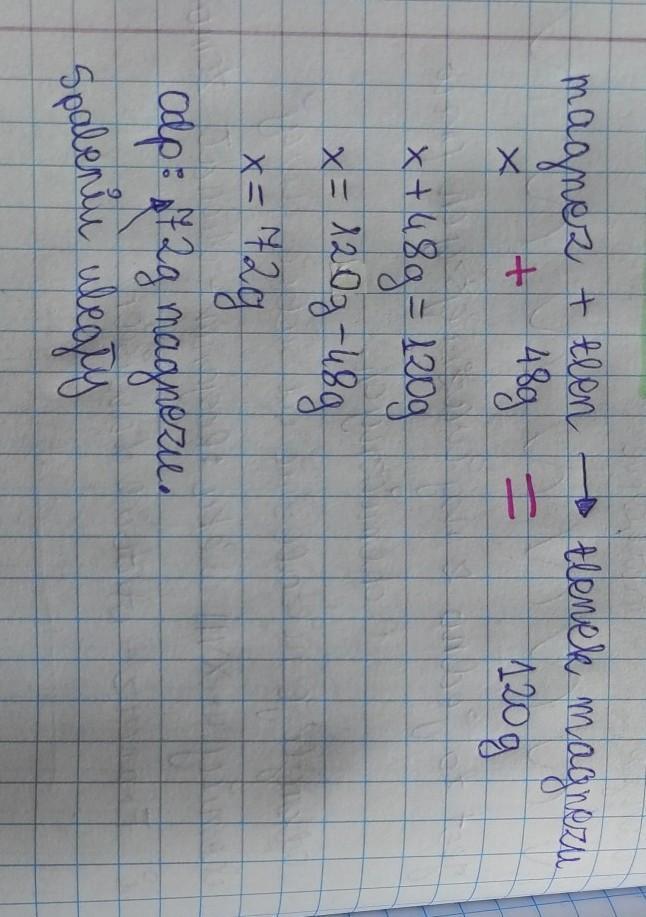 magnez + tlen → tlenek magnezu
x + 48g = 120g
x + 48g = 120g
x = 120g - 48g
x = 72g
odp: 72g magnezu.
Spaleniu uległy